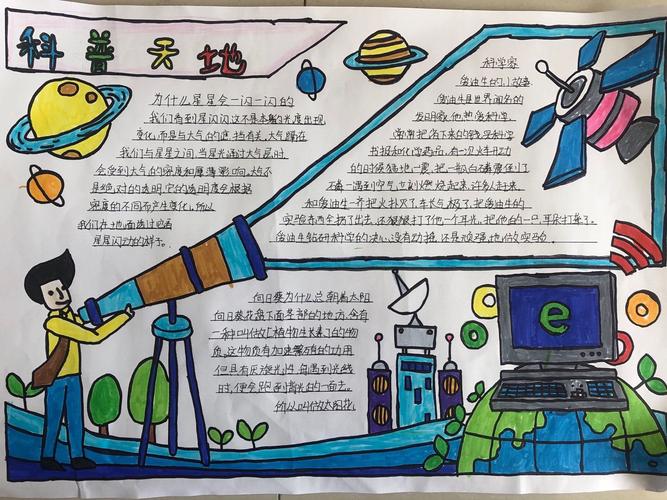 科普天地
为什么星星会一闪一闪的
我们看到星闪闪,这不是本身的光度出现
变化,而是与大气的遮挡有关,大气隔在
我们与星星之间,当星光通过大气层时,
会受到大气的密度和厚薄影响,大气不
是绝对的透明,它的透明度会根据
密度的不同而产生变化,所以
我们在地面透过它看
星星闪动的样子。
科学家
爱迪生的小故事
爱迪生是世界闻名的
发明家,他热爱科学
常常把省下来的钱买科学
书报和化学药品,有一次火车开动
的时候猛地一震,把一瓶白磷震倒了
磷一遇到空气立刻燃烧起来,许多人赶来,
和爱迪生一齐把火扑灭了,车长气极了,把爱迪生的
实验东西全扔了出去,还狠狠打了他一个耳光,把他的一只耳朵打聋了。
爱迪生钻研科学的决心没有动摇,还是顽强地做实验。
向日葵为什么总朝着太阳
向日葵花盘下面茎部的地方,含有
一种叫做「植物生长素」的物
质,这物质有加速繁殖的功用
但具有反旋光性,每遇到光线
时,便会跑到背光的一面去。
所以叫做太阳花。
e